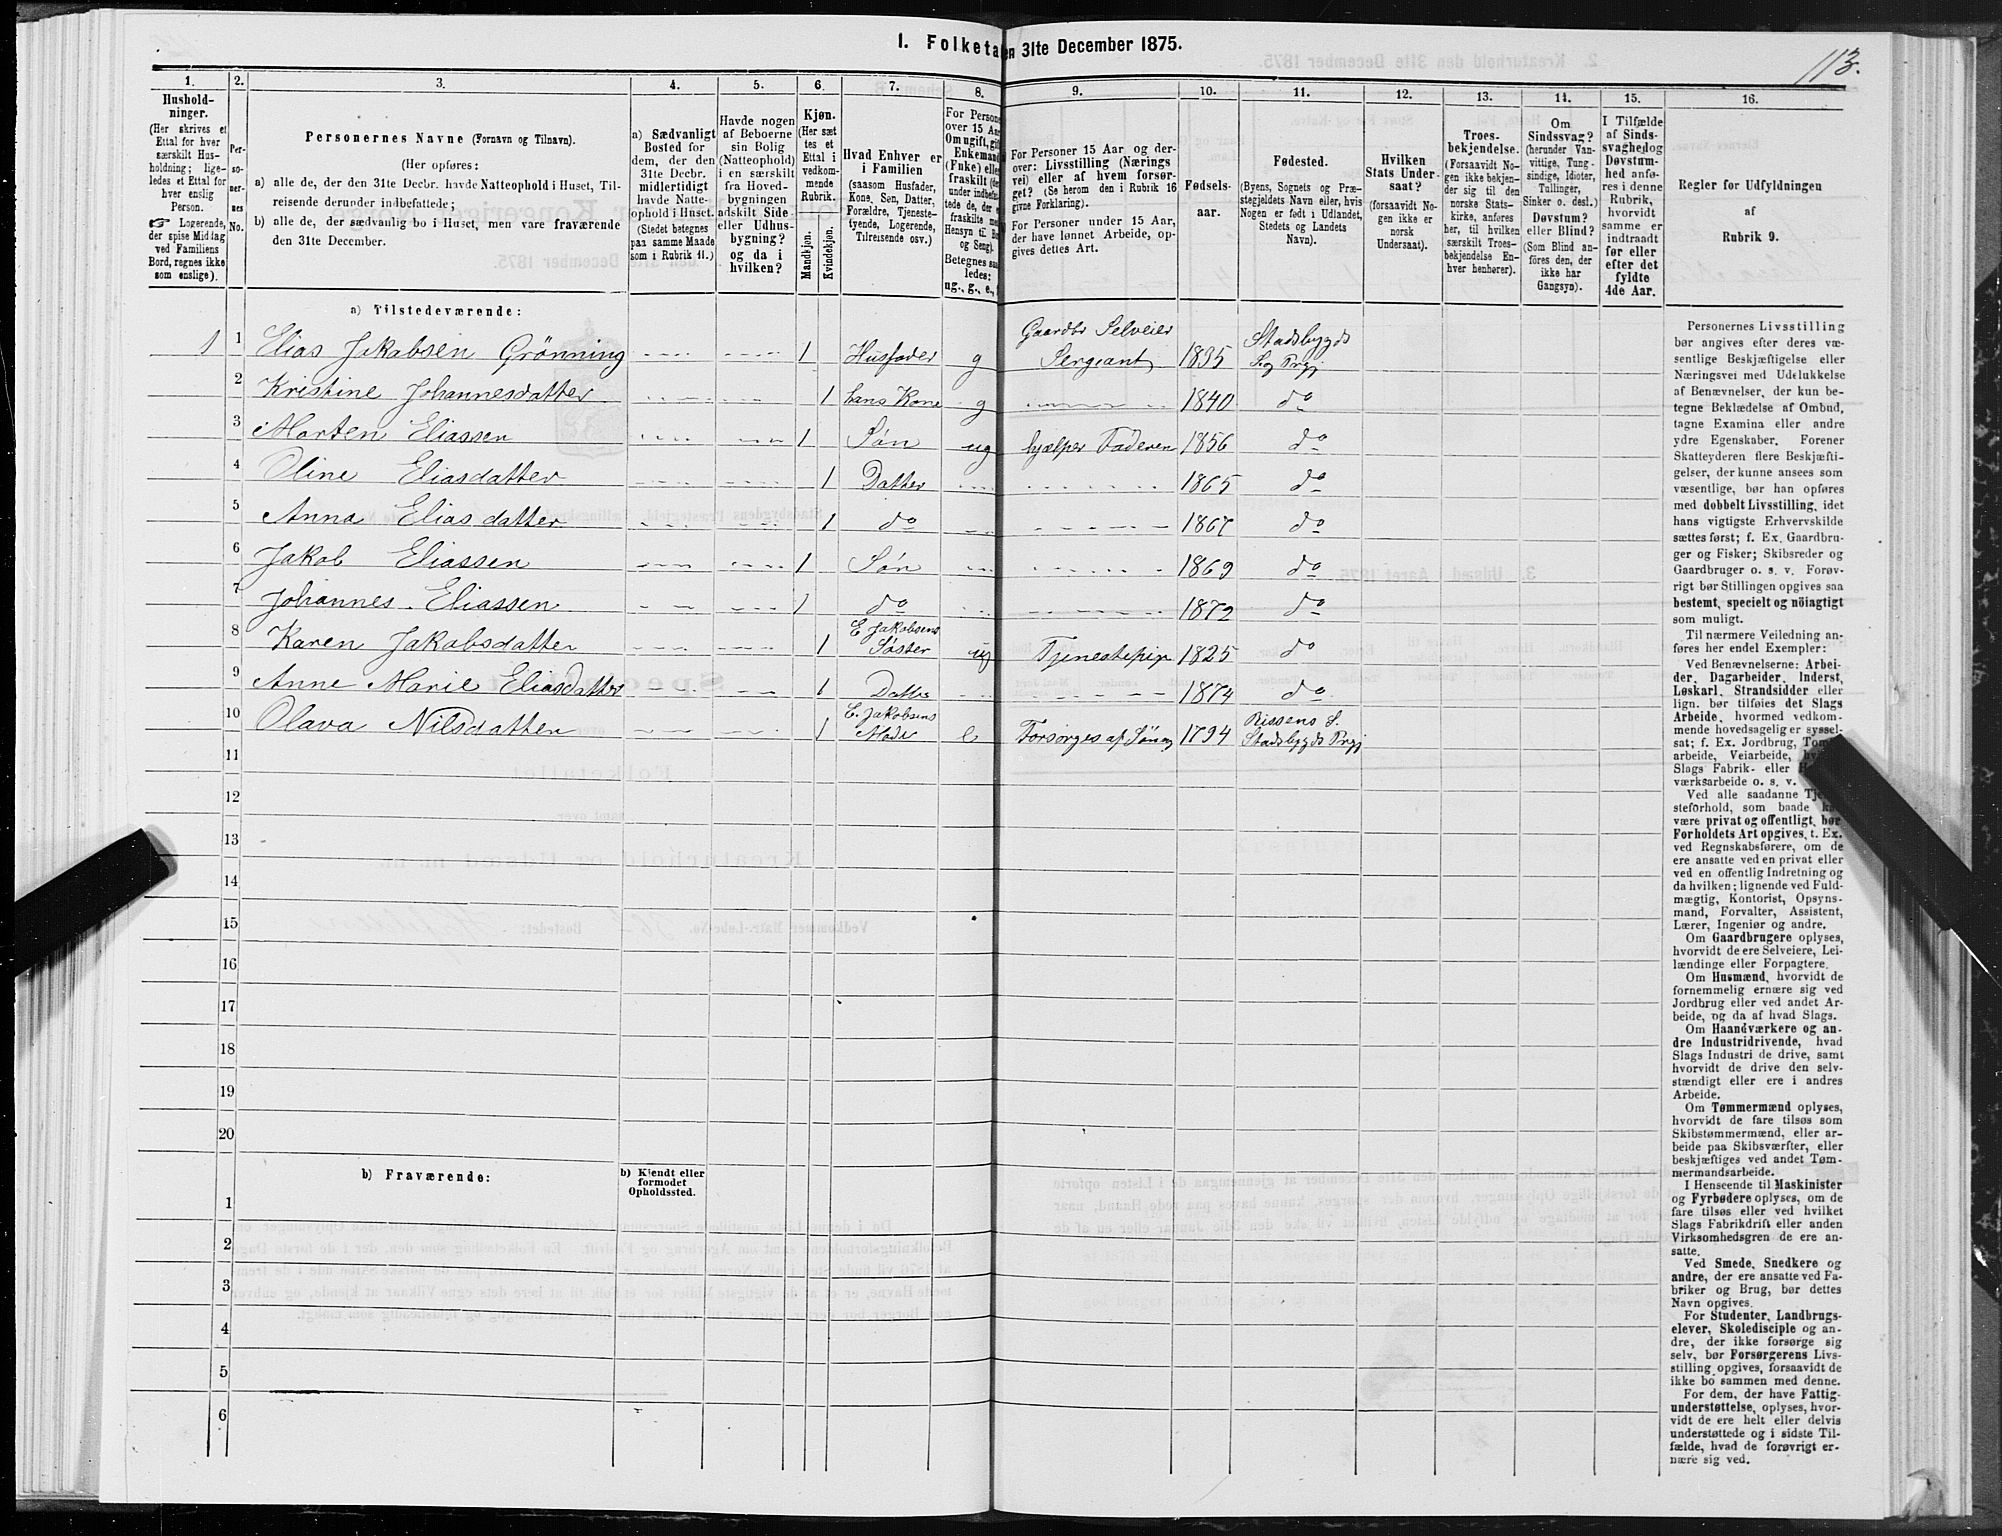 1. Folketa en 31te December 1875.
113.
1. 2. 3. 4. 5. 6. 7. 8. 9. 10. 11. 12. 13. 14. 15. 16.
Hushold-
ninger.
(Her skrives et
Ettal for hver
særskilt Hus-
holdning; lige-
ledes et Ettal for
hver enslig
Person.
☞ Logerende,
der spise Middag
ved Familiens
Bord, regnes ikke
som enslige).
Per-
so-
ner-
nes
No.
Personernes Navne (Fornavn og Tilnavn).
(Her opføres:
a) alle de, der den 31te Decbr. havde Natteophold i Huset, Til-
reisende derunder indbefattede;
b) alle de, der sædvanlig bo i Huset, men vare fraværende
den 31te December.
a) Sædvanligt
Bosted for
dem, der den
31te Decbr.
midlertidigt
havde Natte-
ophold i Huset.
(Stedet betegnes
paa samme Maade
som i Rubrik 11.)
Havde nogen
af Beboerne
sin Bolig
(Natteophold)
i en særskilt
fra Hoved-
bygningen
adskilt Side
eller Udhus-
bygning?
og da i
hvilken?
Kjøn.
(Her sæt-
tes et
Ettal i
vedkom-
mende
Rubrik.
Mandkjøn.
Kvindekjøn.
Hvad Enhver er
i Familien
(saasom Husfader,
Kone, Søn, Datter,
Forældre, Tjeneste-
tyende, Logerende,
Tilreisende osv.)
For Persone
over 15 Aar
Om ugift, gif
Enkemand
(Enke) elle
fraskilt (de
under indbefa
tede de, der e
fraskilte me
Hensyn til Bo
og Seng).
Betegnes saa
ledes:
ug., g., e., f
For Personer 15 Aar og der-
over: Livsstilling (Nærings
vei) eller af hvem forsør-
get? (Se herom den i Rubrik 16
givne Forklaring).
For Personer under 15 Aar,
der have lønnet Arbeide, op-
gives dettes Art.
Fødsels-
aar.
Fødested.
(Byens, Sognets og Præ-
stegjeldets Navn eller, hvis
Nogen er født i Udlandet,
Stedets og Landets
Navn).
Hvilken
Stats Under-
saat?
(forsaavidt No-
gen ikke er
norsk
Undersaat).
Troes-
bekjendelse.
(Forsaavidt No-
gen ikke bekjen-
der sig til den
norske Stats-
kirke, anføres
her, til hvilken
særskilt Troes-
bekjendelse En-
hver henhører).
Om
Sindssvag?
(herunder Van-
vittige, Tung-
sindige, Idioter,
Tullinger,
Sinker o. desl.)
Døvstum?
eller Blind?
(Som Blind an-
føres den, der
ikke har
Gangsyn).
I Tilfælde
af Sinds-
svaghedog
Døvstum-
hed anfø-
res i denne
Rubrik,
hvorvidt
samme er
indtraadt
før eller
efter det
fyldte
4de Aar.
Regler for Udfyldningen
af
Rubrik 9.
a) Tilstedeværende:
1 1 Elias Jakobsen Grönning 1 Husfader g Gaardbr Selveier Sergeant 1835 Stadsbygds S. og Prgj
2 Kristine Johannesdatter 1 hans Kone g 1840 do
3 Morten Eliassen 1 Søn ug hjælper Faderen 1856 do
4 Oline Eliasdatter 1 Datter 1865 do
5 Anna Eliasdatter 1 do 1867 do
6 Jakob Eliassen 1 Søn 1869 do
7 Johannes Eliassen 1 do 1872 do
8 Karen Jakobsdatter 1 E. Jakobsens Søster ug Tjenestepige 1825 do
9 Anne Marie Eliasdatter 1 Datter 1874 do
10 Olava Nilsdatter 1 E. Jakobsens Moder e Forsørges af Sønnen 1794 Rissens S. Stadsbygds Prgj
11
12
13
14
15
16
17
18
19
20
b) Fraværende:
b) Kjendt eller
formodet
Opholdssted.
1
2
3
4
5
6
Personernes Livsstilling
bør angives efter deres væ-
sentlige Beskjæftigelse eller
Næringsvei med Udelukkelse
af Benævnelser, der kun be-
tegne Beklædelse af Ombud,
tagne Examina eller andre
ydre Egenskaber. Forener
Skatteyderen flere Beskjæfti-
gelser, der kunne ansees som
væsentlige, bør han opføres
med dobbelt Livsstilling, idet
hans vigtigste Erhvervskilde
sættes først; f. Ex. Gaardbru-
ger og Fisker; Skibsreder og
Gaardbruger o. s. v. Forøv-
rigt bør Stillingen opgives saa
bestemt, specielt og nöiagtigt
som muligt.
Til nærmere Veiledning an-
føres her endel Exempler:
Ved Benævnelserne: Arbei-
der, Dagarbeider, Inderst,
Løskarl, Strandsidder eller
lign. bør tilføies det Slags
Arbeide, hvormed vedkom-
mende hovedsagelig er syssel-
sat; f. Ex. Jordbrug, Tom
arbeide, Veiarbeide,
Slags Fabrik- eller
værksarbeide o. s. v.
Ved alle saadanne Tje
steforhold, som baade
være privat og offentligt, bør
Forholdets Art opgives, t. Ex.
ved Regnskabsførere, om de
ere ansatte ved en privat eller
ved en offentlig Indretning og
da hvilken; lignende ved Fuld-
mægtig, Kontorist, Opsyns-
mand, Forvalter, Assistent,
Lærer, Ingeniør og andre.
Om Gaardbrugere oplyses,
hvorvidt de ere Selveiere, Lei-
lændinge eller Forpagtere.
Om Husmænd, hvorvidt de
fornemmelig ernære sig ved
Jordbrug eller ved andet Ar-
beide, og da af hvad Slags.
Om Haandværkere og an-
dre Industridrivende, hvad
Slags Industri de drive, samt
hvorvidt de drive den selv-
stændigt eller ere i andres
Arbeide.
Om Tømmermænd oplyses,
hvorvidt de fare tilsøs som
Skibstømmermænd, eller ar-
beide paa Skibsværfter, eller
beskjæftiges ved andet Tøm-
mermandsarbeide.
I Henseende til Maskinister
og Fyrbødere oplyses, om de
fare tilsøs eller ved hvilket
Slags Fabrikdrift eller anden
Virksomhedsgren de ere an-
satte.
Ved Smede, Snedkere og
andre, der ere ansatte ved Fa-
briker og Brug, bør dettes
Navn opgives.
For Studenter, Landbrugs-
elever, Skoledisciple og an-
dre, der ikke forsørge sig
selv, bør Forsørgerens Livs-
stilling opgives, forsaavidt de
ikke bo sammen med denne.
For dem, der have Fattig-
understøttelse, oplyses, hvor-
vidt de ere helt eller delvis
understøttede og i sidste Til-
fælde, hvad de forøvrigt er-
nære sig ved.